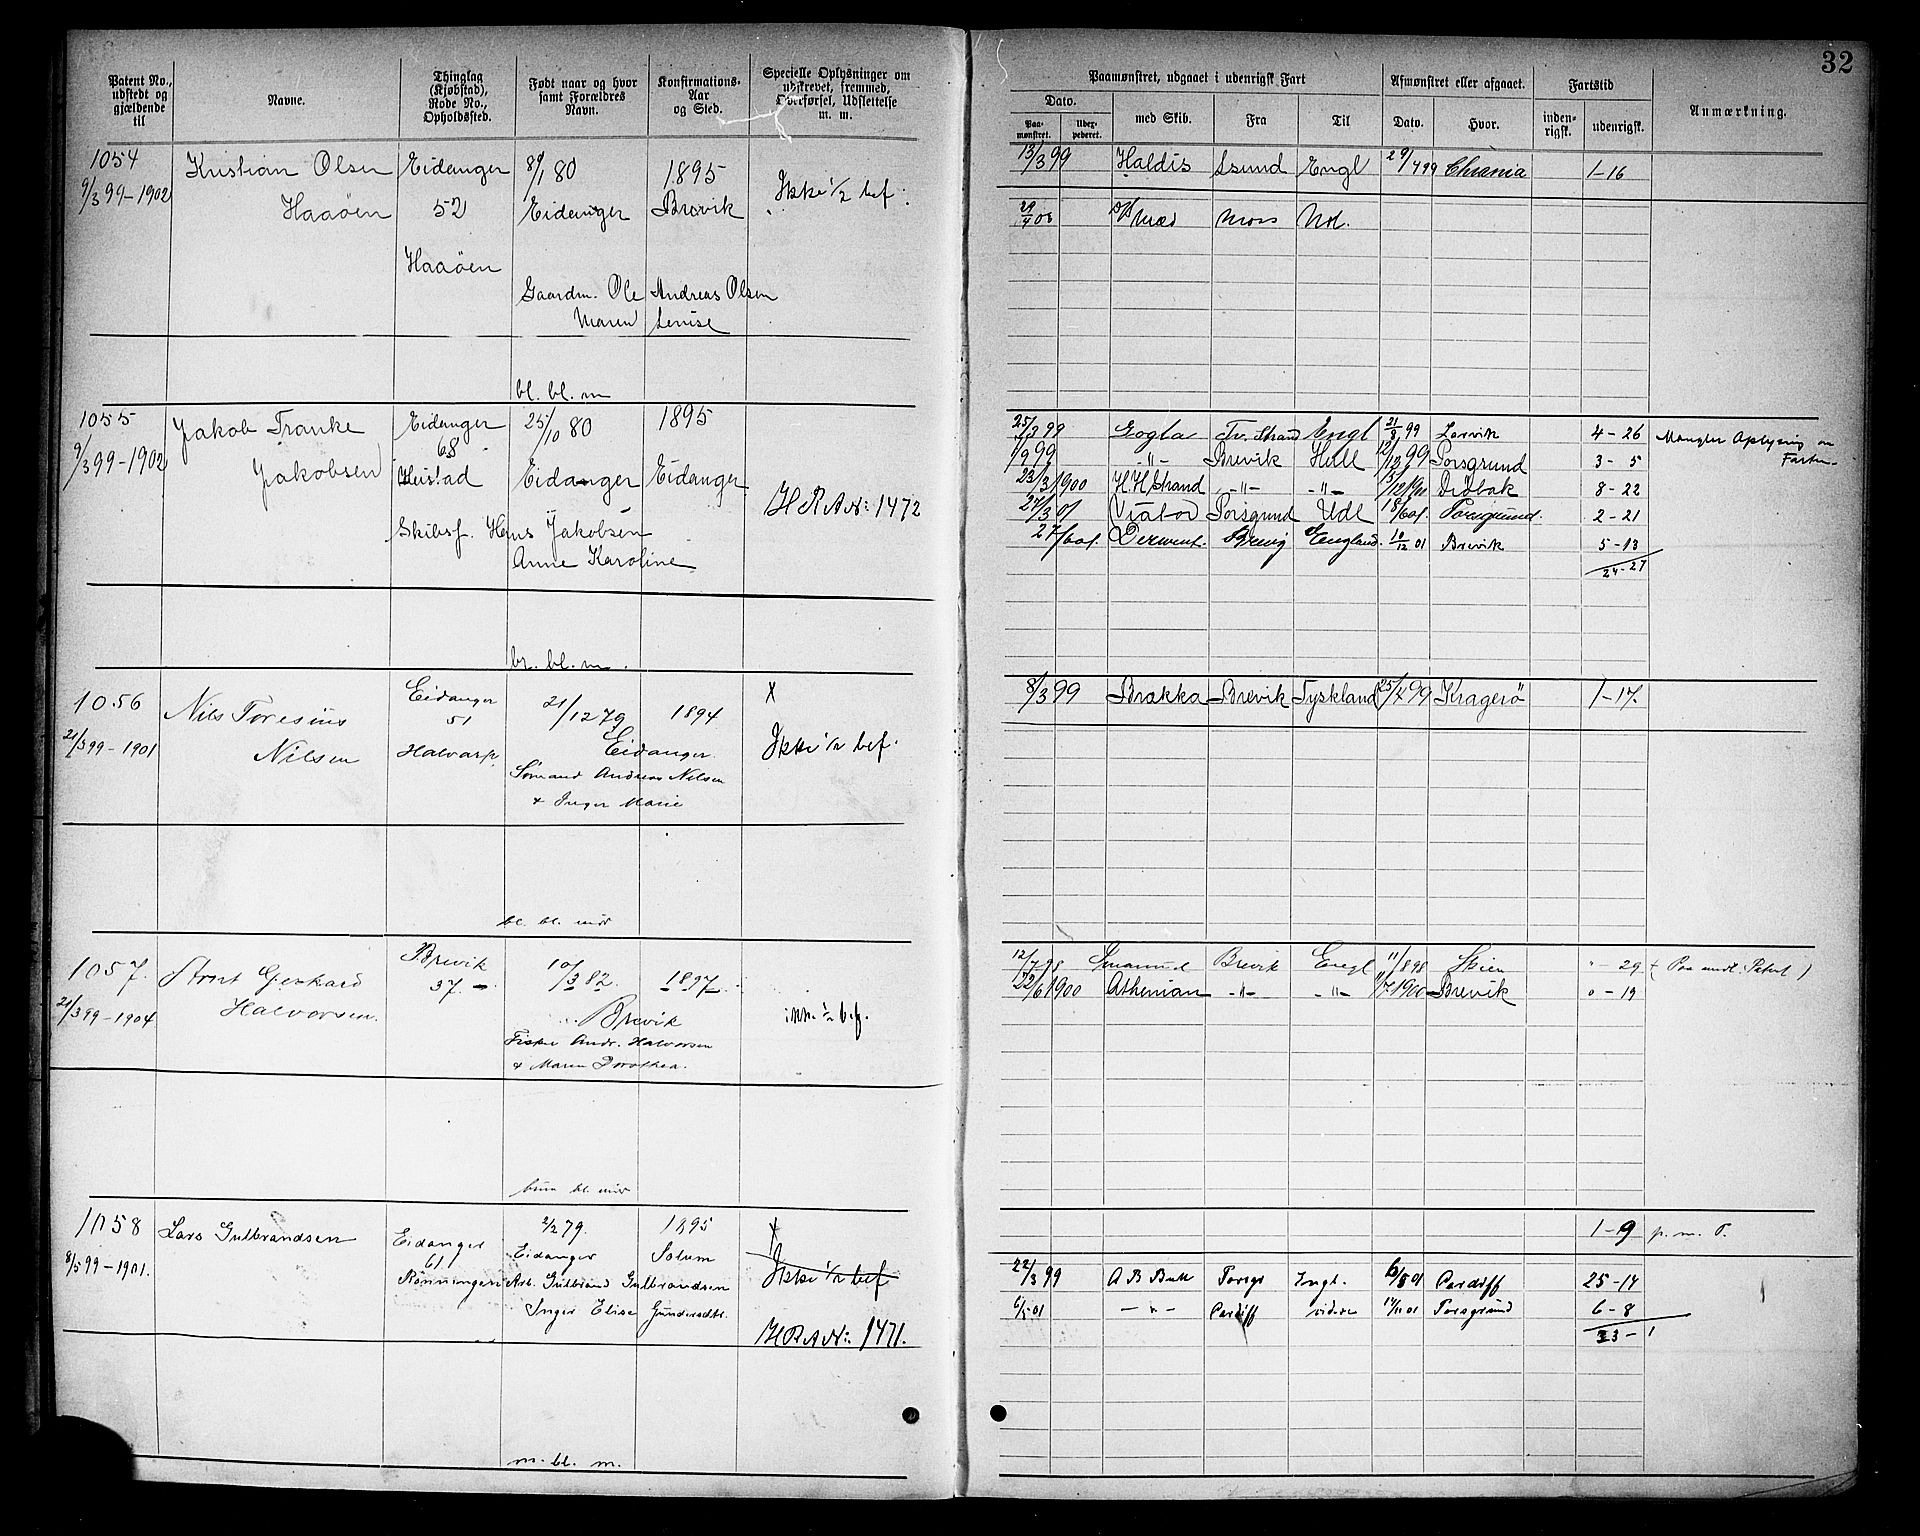 32
Patent No., udstedt og gjældende til
Navne.
Thinglag (Kjøbstad), Rode No., Opholdssted.
Født naar og hvor samt Forældres Navn.
Konfirmations-Aar og Sted.
Specielle Oplysninger om udskrevet, fremmed, Overførsel, Udslettelse m. m.
Paamønstret, udgaaet i udenrigsk Fart
Afmønstret eller afgaaet.
Fartstid
Anmærkning.
Dato.
Paa-mønstret.
Uber-pederet.
med Skib.
Fra
Til
Dato.
Hvor.
inden-rigsk.
udenrigsk.
1054 Kristian Olsen Eidanger 8/1 80 1895
9/3 99-1902 Haaöen 52 Eidanger Brevik Ikke 1/2 bef.
Haaöen
Gaardm. Ole Andreas Olsen
Maren Lenise
bl. bl. m
13/3 99 Haldis Engl 29/4 99 Chrania 1-16
Moss Ud.
1055 Jakob Franke Eidanger 25/10 80 1895
9/3 99-1902 Jakobsen 68
Heistad Eidanger Eidanger
H R A N: 1472
Skibsf. Hans Jakobsen
Anne Karoline
br. bl. m.
25/3 99 Tv. Strand Engl 21/8 99 Larvik 4-26 Mangler Oplysning om Farten
1/9 99 -"- Brevik Hull 12/12 99 Porsgrund 3-5
23/3 1900 H.H. Strand -"- -"- 13/12 1900 Dröbak 8-22
27/3 01 Viator Porsgrund Udl 18/6 01. Porsgrund. 2-21
27/6 01. Derwent. Brevig England. 10/12 01 Brevik 5-13
24-27
1056 Nils Toresius Eidanger 21/12 79 1894 x
51
21/3 99-1901 Nilsen Halvarp. Eidanger. Ikke 1/2 bef.
Sömand Andreas Nilsen
+ Inger Marie
bl. bl. mdr
8/3 99 Brakka Brevik Tyskland 25/4 99 Kragerö 1-17.
1057. Arnt Gerhard Brevik 10/3 82. 1897
37.-
21/3 99-1904 Halvorsen. Brevik ikke 1/2 bef.
Fisker Andr. Halvorsen
+ Maren Dorothea.
brun bl. mdr
12/7 98 Brevik Engl 11/8 98 Skien "-29 (Paa undl. Patent)
22/6 1900 Athenian -"- -"- 11/7 1900 Brevik 0-19
1058 Lars Gulbrandsen Eidanger 2/2 79. 1895 x
8/5 99-1901. 61 Eidanger Solum Ikke 1/2 bef
Rönningen Arb. Gulbrand Gulbrandsen
Inger Elise Gundersdtr.
H R A N: 1471.
m. bl. m.
1-9 p. m. P.
22/3 99 A B Bull Porsgr Engl. 6/5 01 Cardiff 25-14
6/5 01 -"- Cardiff videre 14/11 01 Porsgrund 6-8
33-1